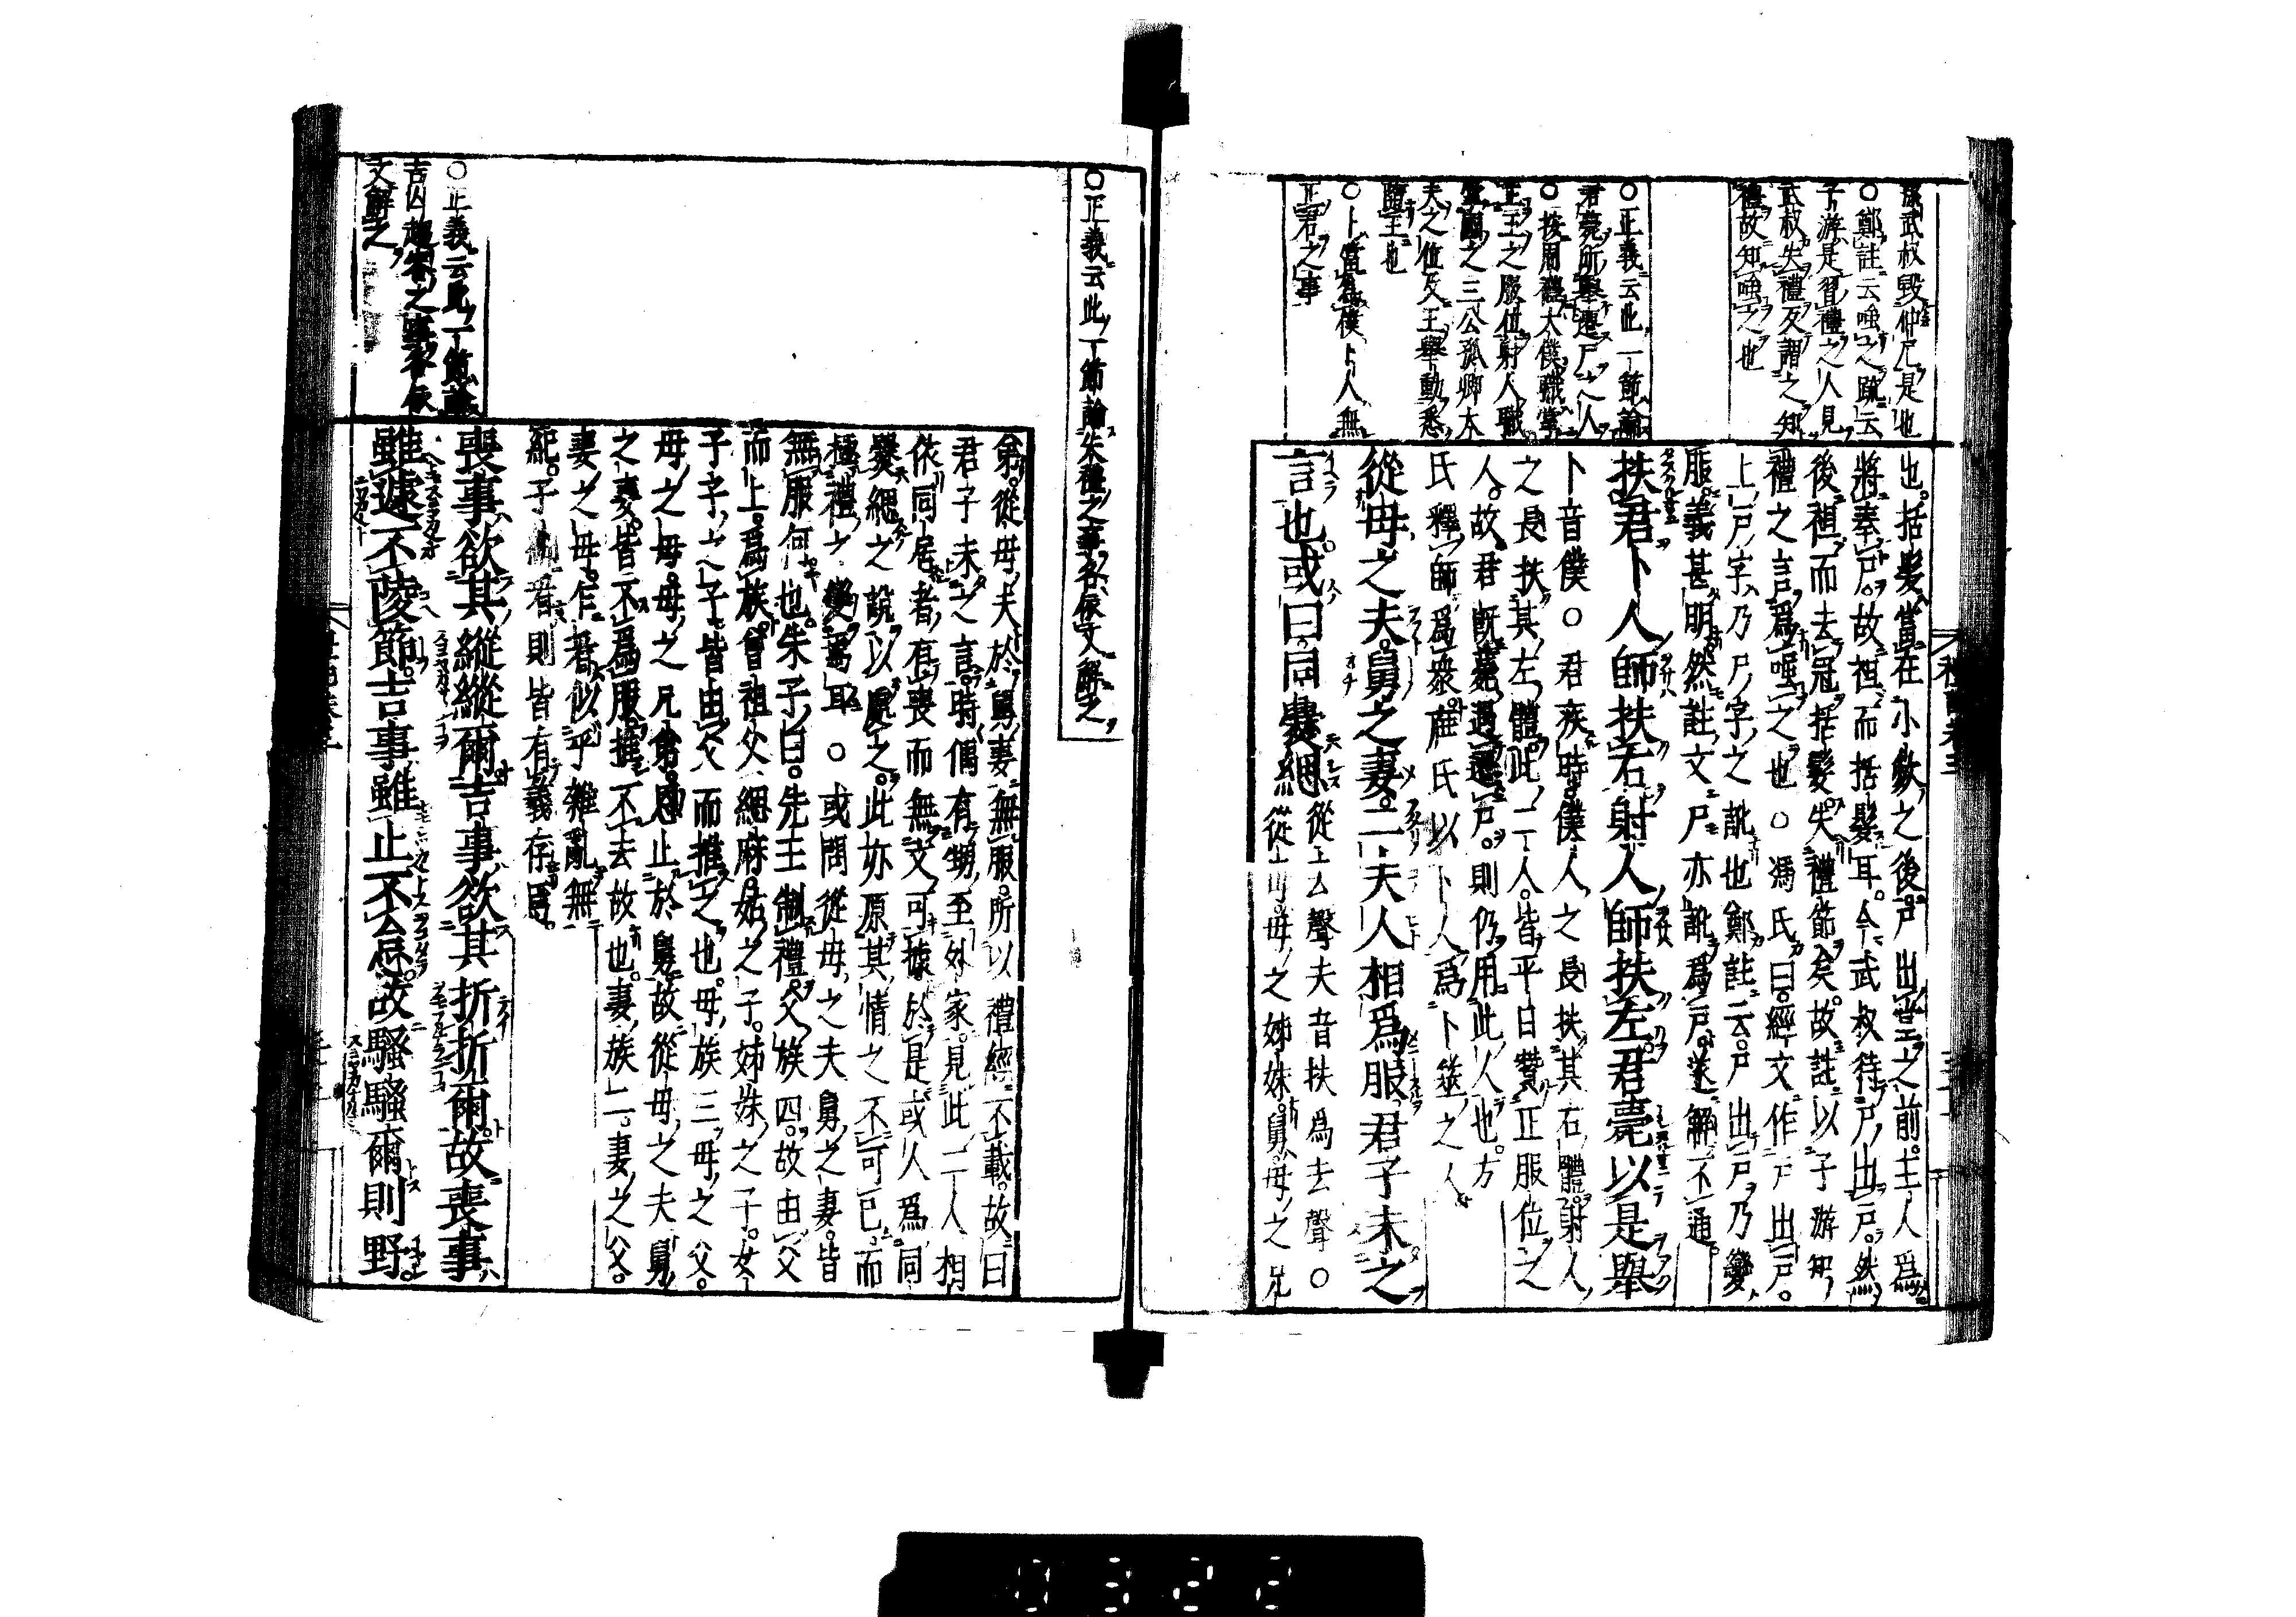 孫武叔毀仲尼是也
○鄭註云嗤之疏云
子游是習禮之人見
武叔失禮反謂之知
禮故知嗤之也
○正義云此一節論
君薨所舉遷尸之人
○按周禮太僕職掌
正王之服位射人職
掌國之三公孤卿大
夫之位及王舉動悉
隨王也
○卜當爲僕卜人無
正君之事
也。括髮當在小斂之後。尸出堂之前。主人爲
將奉尸。故袒而括髮耳。今武叔待尸出戶。然
後袒而去冠括髮。失禮節矣。故註以子游知
禮之言。爲嗤之也○馮氏曰。經文作尸出戶。
上尸字。乃尸字之訛也。鄭註云。尸出戶乃變
服。義甚明。然註文尸亦訛爲戶。遂解不通。
扶君卜人師扶右射人師扶左君薨以是舉
卜音僕○君疾時。僕人之長扶其右體。射人
之長扶其左體。此二人。皆平日贊正服位之
人。故君旣薨。遇遷尸。則仍用此人也。方
氏釋師爲衆。應氏以卜人爲卜筮之人
從母之夫。舅之妻。二夫人相爲服君子未之
言也。或曰。同爨緦
從去聲夫音扶爲去聲○
從母。母之姊妹。舅。母之兄
弟。從母夫於舅妻無服。所以禮經不載。故曰
君子未之言。時偶有甥至外家。見此二人相
依同居者。有喪而無文可據。於是或人爲同
爨緦之說以處之。此亦原其情之不可已。而
極禮之變焉耳○或問從母之夫舅之妻。皆
無服何也。朱子曰。先王制禮。父族四。故由父
而上。爲族曾祖父緦麻。姑之子。姊妹之子。女
子子之子。皆由父而推之也。母族三。母之父。
母之母。母之兄弟。恩止於舅。故從母之夫舅
之妻。皆不爲服。推不去故也。妻族二。妻之父。
妻之母。乍看似乎雜亂無
紀。子細看。則皆有義存焉。
喪事欲其縱縱爾吉事欲其折折爾故喪事
雖遽不陵節。吉事雖止不怠。故騷騷爾則野。
○正義云此一節論朱禮之事各依文解之
○正義云此一節論
吉凶趨容之事各依
文解之
0322